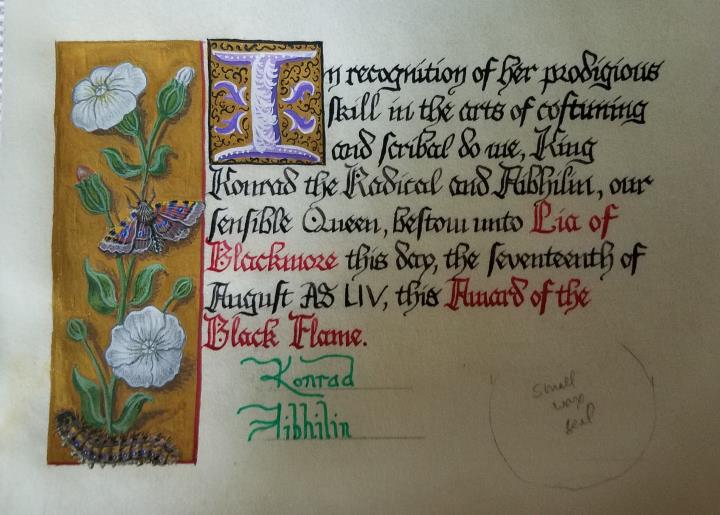 In recognition of her prodigious
skill in the arts of costuming
and scribal do we, King
Konrad the Radical and Aibhilin, our
sensible Queen, bestow unto Lia of
Blackmore this day, the seventeenth of
August AS LIV, this Award of the
Black Flame.
Konrad
Aibhilin
small
wax
seal